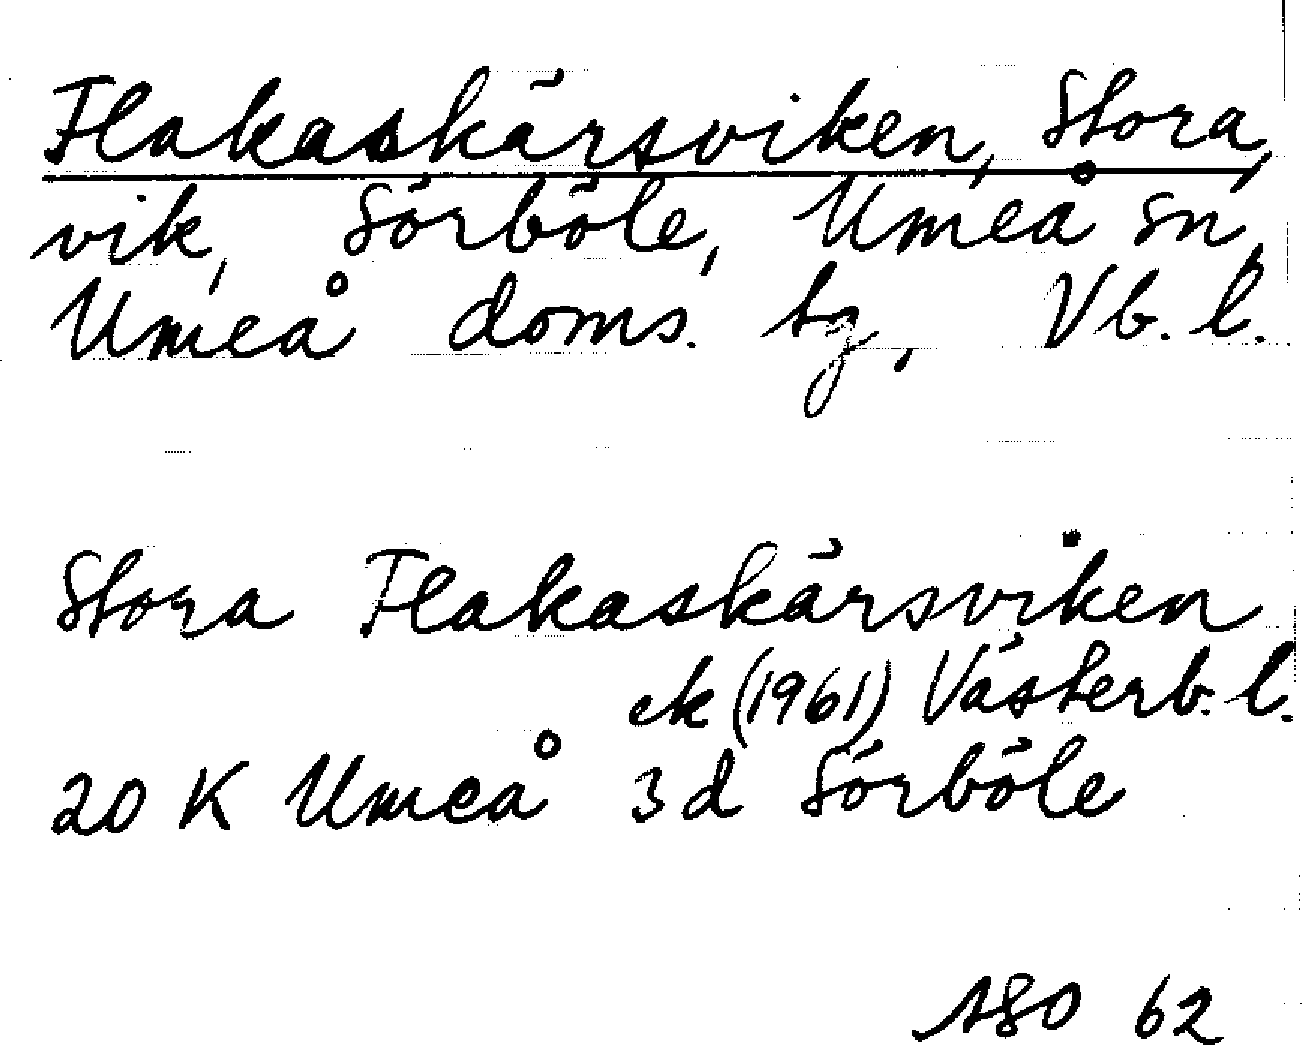 Flakaskärsviken, Stora,
vik, Sörböle, Umeå sn,
Umeå doms. tg, Vb. l.
Stora Flakaskärsviken
ek (1961) Västerb. l.
20 K Umeå 3 d Sörböle
62